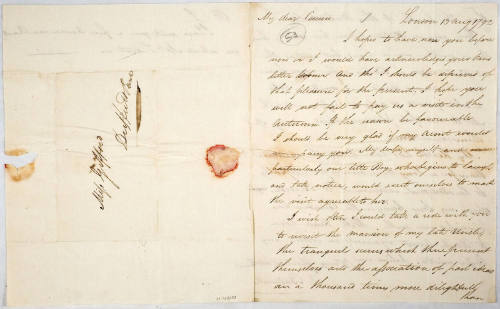 My dear Cousin
London 13 Aug 1792
I hoped to have seen you before
now or I would have acknowledged your kind
letter sooner and tho' I should be deprived of
that pleasure for the present I hope you
will not fail to pay us a visit in the
Autumn If the season be favourable
I should be very glad if my Aunt would
accompany you. My Wife, myself and more
particularly our little Boy, who begins to laugh
and take notice, would exert ourselves to make
the visit agreeable to her.
I wish often I could take a ride with you
to revisit the mansion of my late Uncle,
the tranquil scenes which there present
themselves and the association of past ideas
are a thousand times more delightfull
than
Miss